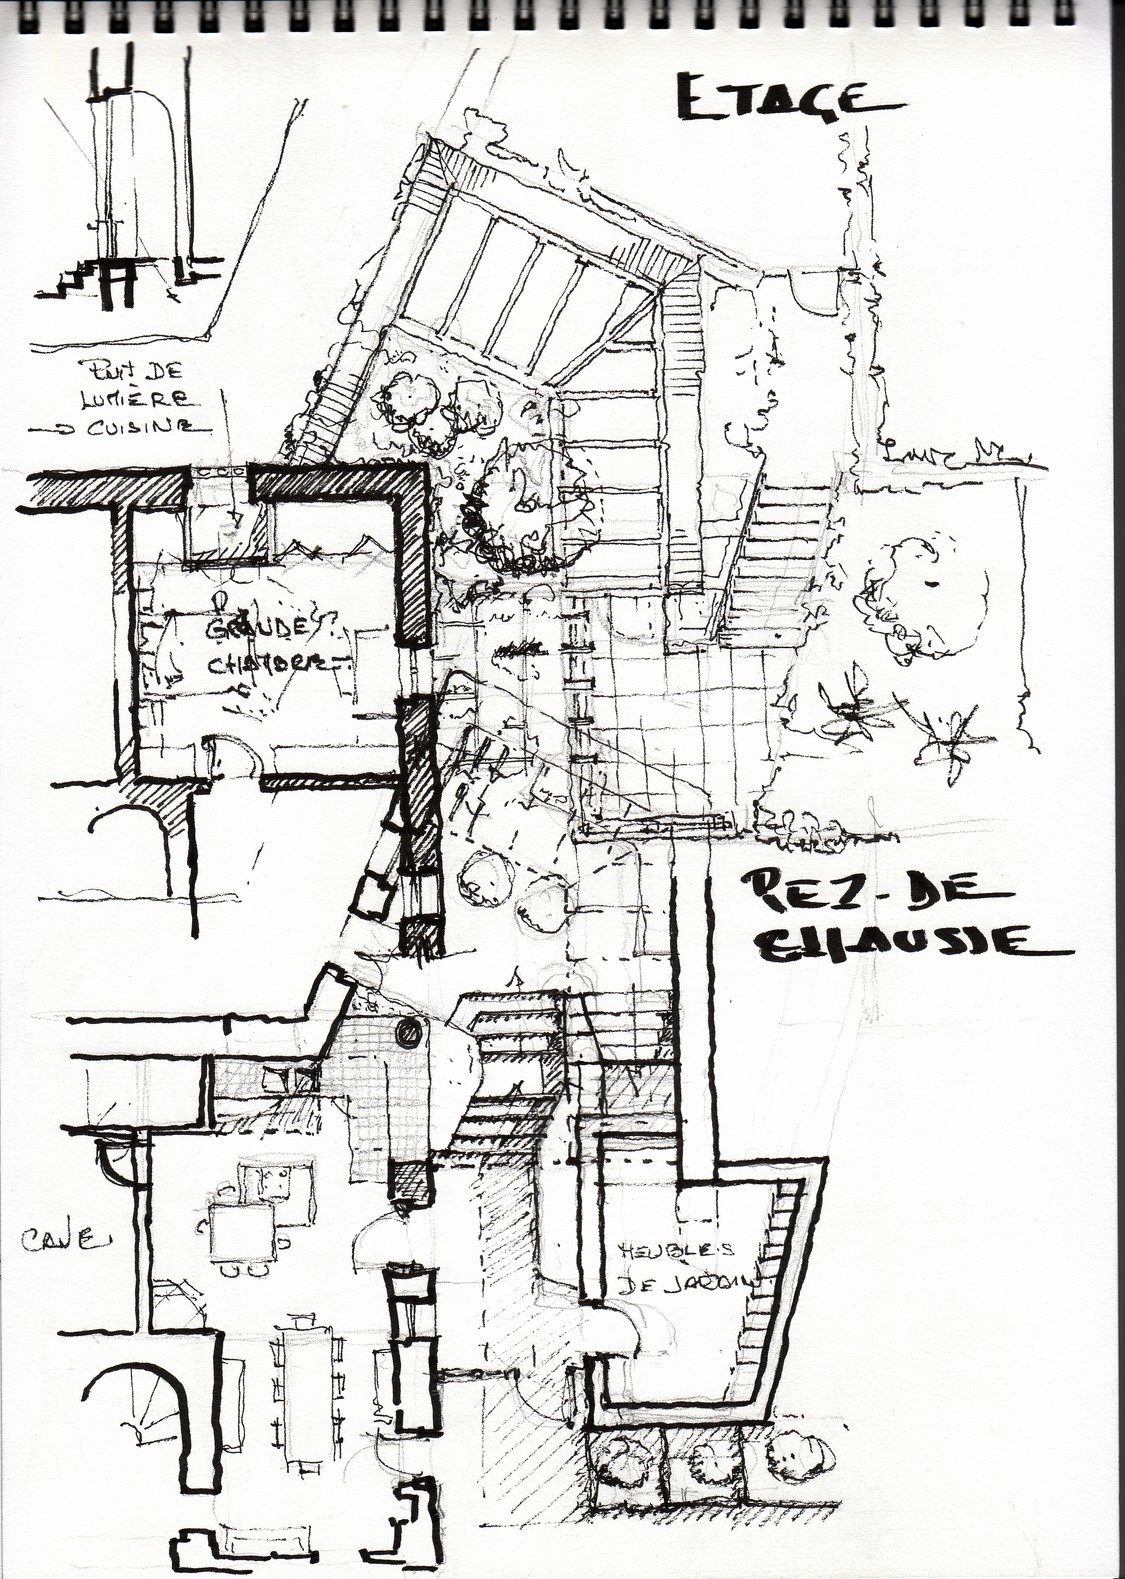 ETAGE
PUIT DE
LUMIÈRE
→ CUISINE
GRANDE
CHAMBRE
REZ-DE
CHAUSSIE
CAVE
MEUBLES
DE JARDIN